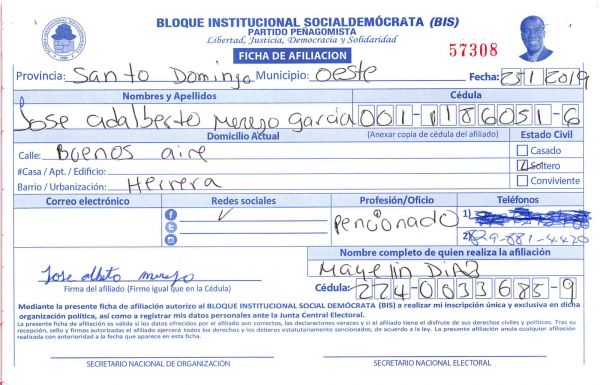 BLOQUE INSTITUCIONAL SOCIALDEMÓCRATA (BIS)
PARTIDO PEÑAGOMISTA
Libertad, Justicia, Democracia y Solidaridad
FICHA DE AFILIACION
57308
Provincia: Santo Domingo Municipio: oeste Fecha: 25/1/2019
Nombres y Apellidos Cédula
Jose adalberto Merejo garcia 001-1186051-6
Domicilio Actual (Anexar copia de cédula del afiliado) Estado Civil
Calle: Buenos aire Casado
#Casa / Apt. / Edificio: Soltero
Barrio / Urbanización: Herrera Conviviente
Correo electrónico Redes sociales Profesión/Oficio Teléfonos
Pencionado 1)
2) 829-881-4420
Nombre completo de quien realiza la afiliación
Mayelin Diaz
Jose albeto merejo
Firma del afiliado (Firme igual que en la Cédula) Cédula: 224-0033685-9
Mediante la presente ficha de afiliación autorizo al BLOQUE INSTITUCIONAL SOCIAL DEMÓCRATA (BIS) a realizar mi inscripción única y exclusiva en dicha
organización política, así como a registrar mis datos personales ante la Junta Central Electoral.
La presente ficha de afiliación es válida si los datos ofrecidos por el afiliado son correctos, las declaraciones veraces y si el afiliado tiene el disfrute de sus derechos civiles y políticos. Tras su
recepción, sello y firmas autorizadas el afiliado ejercerá todos los derechos y los deberes estatutariamente sancionados, de acuerdo a la ley. La presente afiliación anula cualquier afiliación
realizada con anterioridad a la fecha que aparece en esta ficha.
SECRETARIO NACIONAL DE ORGANIZACIÓN SECRETARIO NACIONAL ELECTORAL